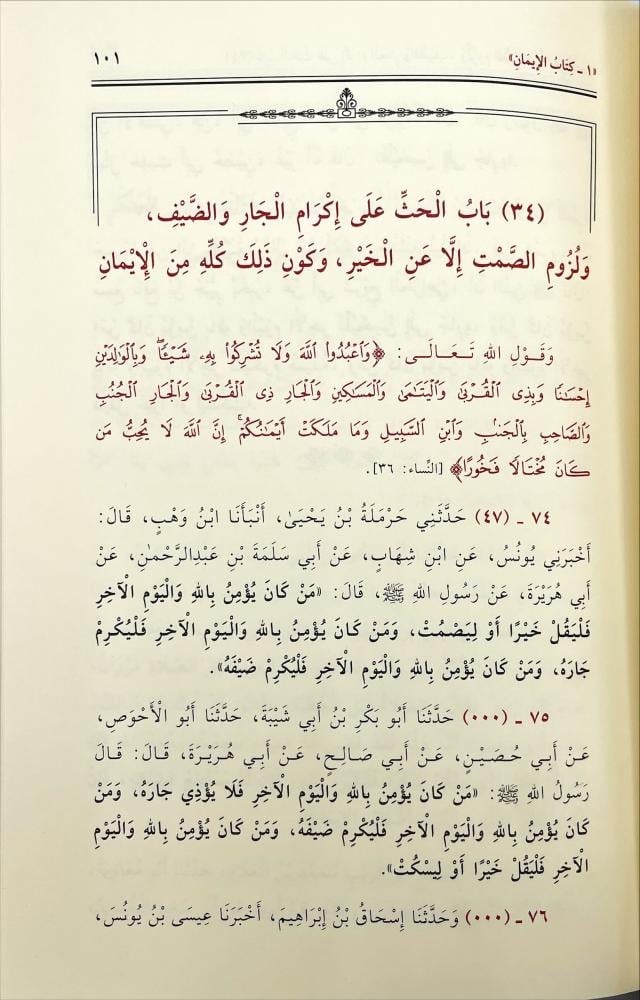 «١ ـ كِتَابُ الإِيمَانِ»
١٠١
(٣٤) بَابُ الْحَثِّ عَلَى إِكْرَامِ الْجَارِ وَالضَّيْفِ،
وَلُزُومِ الصَّمْتِ إِلَّا عَنِ الْخَيْرِ، وَكَوْنِ ذَلِكَ كُلِّهِ مِنَ الْإِيْمَانِ
وَقَوْلِ اللهِ تَعَالَى: ﴿وَٱعْبُدُوا۟ ٱللَّهَ وَلَا تُشْرِكُوا۟ بِهِۦ شَيْـًٔا ۖ وَبِٱلْوَٰلِدَيْنِ
إِحْسَـٰنًا وَبِذِى ٱلْقُرْبَىٰ وَٱلْيَتَـٰمَىٰ وَٱلْمَسَـٰكِينِ وَٱلْجَارِ ذِى ٱلْقُرْبَىٰ وَٱلْجَارِ ٱلْجُنُبِ
وَٱلصَّاحِبِ بِٱلْجَنۢبِ وَٱبْنِ ٱلسَّبِيلِ وَمَا مَلَكَتْ أَيْمَـٰنُكُمْ ۗ إِنَّ ٱللَّهَ لَا يُحِبُّ مَن
كَانَ مُخْتَالًا فَخُورًا﴾ [النِّساء: ٣٦].
٧٤ ـ (٤٧) حَدَّثَنِي حَرْمَلَةُ بْنُ يَحْيَىٰ، أَنْبَأَنَا ابْنُ وَهْبٍ، قَالَ:
أَخْبَرَنِي يُونُسُ، عَنِ ابْنِ شِهَابٍ، عَنْ أَبِي سَلَمَةَ بْنِ عَبْدِالرَّحْمٰنِ، عَنْ
أَبِي هُرَيْرَةَ، عَنْ رَسُولِ اللهِ ﷺ، قَالَ: «مَنْ كَانَ يُؤْمِنُ بِاللهِ وَالْيَوْمِ الْآخِرِ
فَلْيَقُلْ خَيْرًا أَوْ لِيَصْمُتْ، وَمَنْ كَانَ يُؤْمِنُ بِاللهِ وَالْيَوْمِ الْآخِرِ فَلْيُكْرِمْ
جَارَهُ، وَمَنْ كَانَ يُؤْمِنُ بِاللهِ وَالْيَوْمِ الْآخِرِ فَلْيُكْرِمْ ضَيْفَهُ».
٧٥ ـ (٠٠٠) حَدَّثَنَا أَبُو بَكْرِ بْنُ أَبِي شَيْبَةَ، حَدَّثَنَا أَبُو الْأَحْوَصِ،
عَنْ أَبِي حُصَيْنٍ، عَنْ أَبِي صَالِحٍ، عَنْ أَبِي هُرَيْرَةَ، قَالَ: قَالَ
رَسُولُ اللهِ ﷺ: «مَنْ كَانَ يُؤْمِنُ بِاللهِ وَالْيَوْمِ الْآخِرِ فَلَا يُؤْذِي جَارَهُ، وَمَنْ
كَانَ يُؤْمِنُ بِاللهِ وَالْيَوْمِ الْآخِرِ فَلْيُكْرِمْ ضَيْفَهُ، وَمَنْ كَانَ يُؤْمِنُ بِاللهِ وَالْيَوْمِ
الْآخِرِ فَلْيَقُلْ خَيْرًا أَوْ لِيسْكُتْ».
٧٦ ـ (٠٠٠) وَحَدَّثَنَا إِسْحَاقُ بْنُ إِبْرَاهِيمَ، أَخْبَرَنَا عِيسَى بْنُ يُونُسَ،